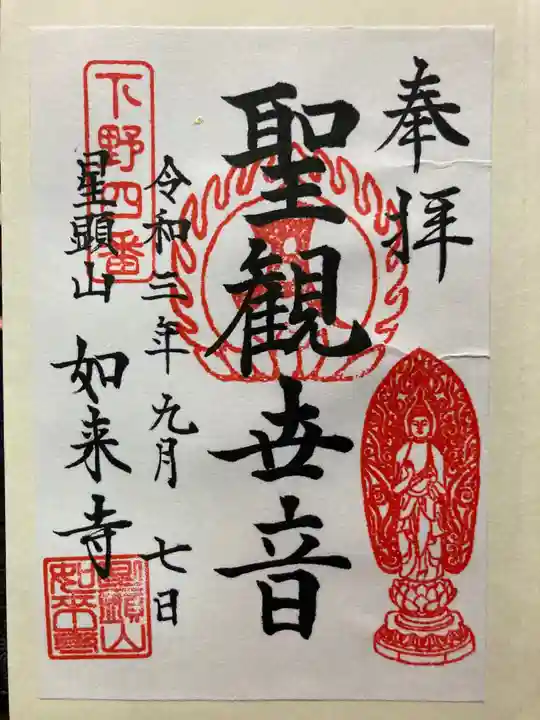 奉拝
聖観世音
令和三年九月七日
下野四番
星頭山如来寺
星頭山
如来寺